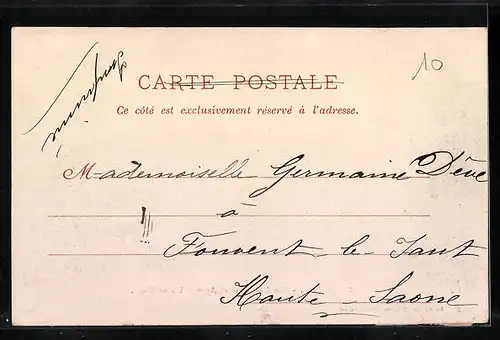 10
CARTE POSTALE
Ce côté est exclusivement réservé à l'adresse.
Mademoiselle Germaine Dève
à
Fouvent-le-Haut
Haute-Saone